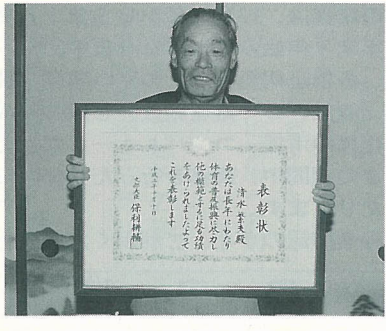 表彰状
清水 殿
あなたは長年にわたり
体育の普及振興に尽力し
他の模範とするに足る功績
をあげられましたよって
これを表彰します
平成二年十月十日
文部大臣 保利耕輔